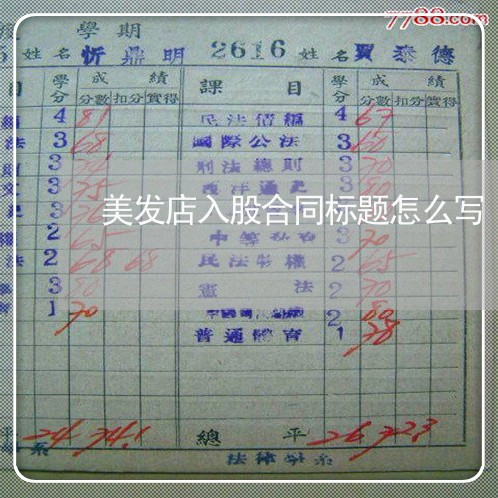 7788.com
學期
5 姓名 忻鼎明 2616 姓名 賈泰德
目 學分 成績 課目 學分 成績
分數 扣分 實得 分數 扣分 實得
4 81 民法債編 4 67
法 3 68 國際公法 3 60
3 刑法總則 3 70
3 75 西洋通史 3 80
美发店入股合同标题怎么写
2 65 3 70
法 2 68 68 民法物權 2 65
3 80 憲法 2 70
1 70 2 80
普通體育 1 78
平 24 74.1 總平 26 72.3
系 法律學系